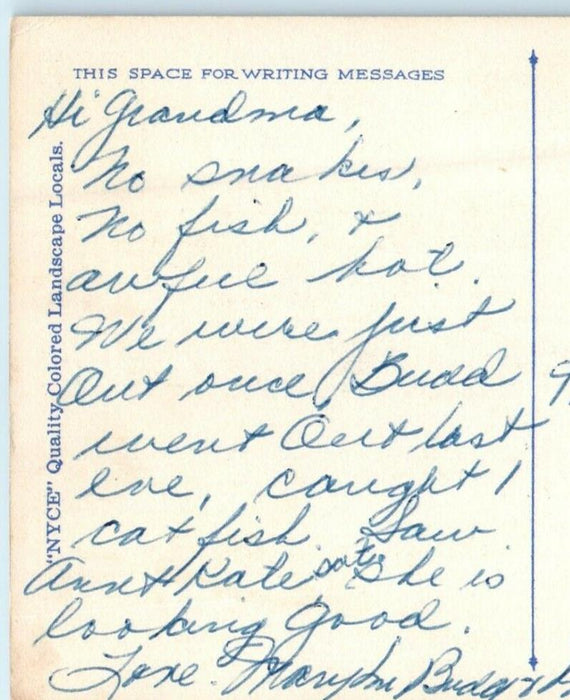 THIS SPACE FOR WRITING MESSAGES
"NYCE" Quality Colored Landscape Locals.
Hi Grandma,
No snakes,
No fish, &
awful hot.
We were just
Out once, Budd
went Out last
eve, caught 1
catfish. Saw
Aunt Kate She is
looking Good.
Love.